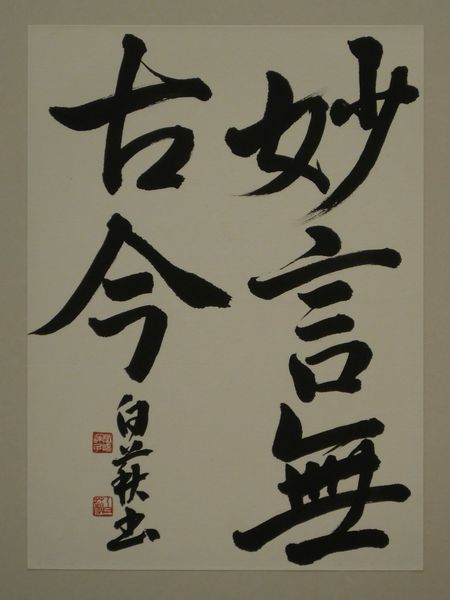 妙言無
古今
白萩書